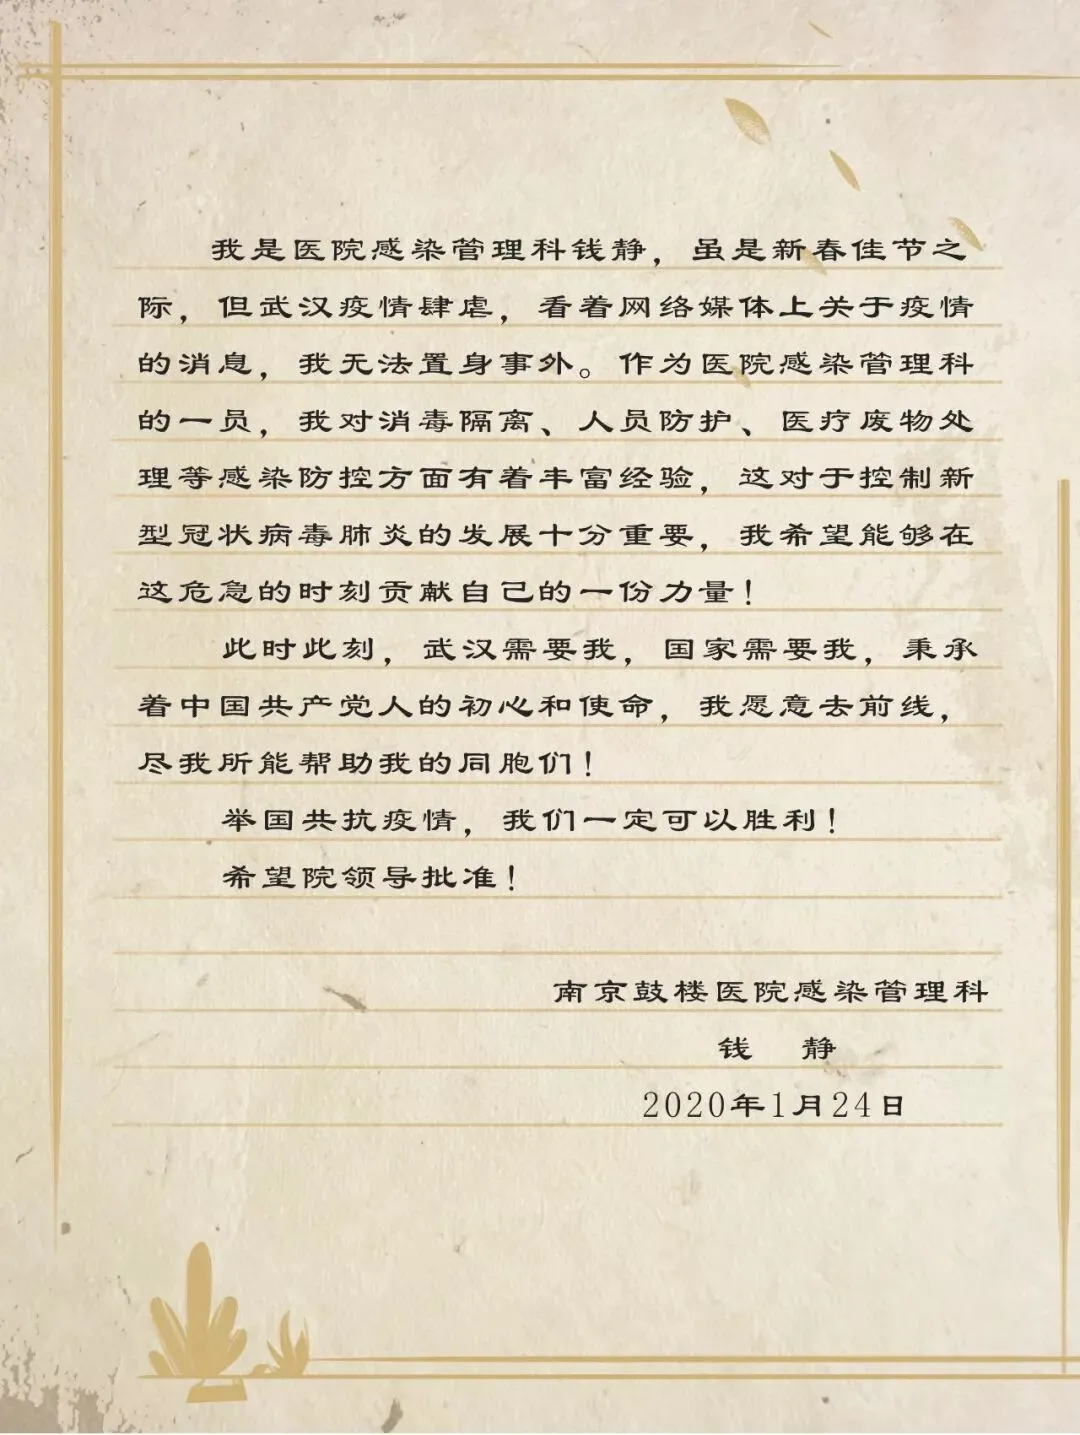 我是医院感染管理科钱静，虽是新春佳节之
际，但武汉疫情肆虐，看着网络媒体上关于疫情
的消息，我无法置身事外。作为医院感染管理科
的一员，我对消毒隔离、人员防护、医疗废物处
理等感染防控方面有着丰富经验，这对于控制新
型冠状病毒肺炎的发展十分重要，我希望能够在
这危急的时刻贡献自己的一份力量！
此时此刻，武汉需要我，国家需要我，秉承
着中国共产党人的初心和使命，我愿意去前线，
尽我所能帮助我的同胞们！
举国共抗疫情，我们一定可以胜利！
希望院领导批准！
南京鼓楼医院感染管理科
钱 静
2020年1月24日